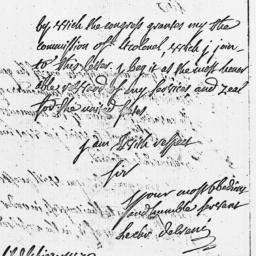 by which the congress grantes my the
commission of Lt colonel, which j join
to this letter. j beg it as the most honor
able reward of my services and zeal
for the united states
j am With respect
Sir
your most obedient
and humble servant